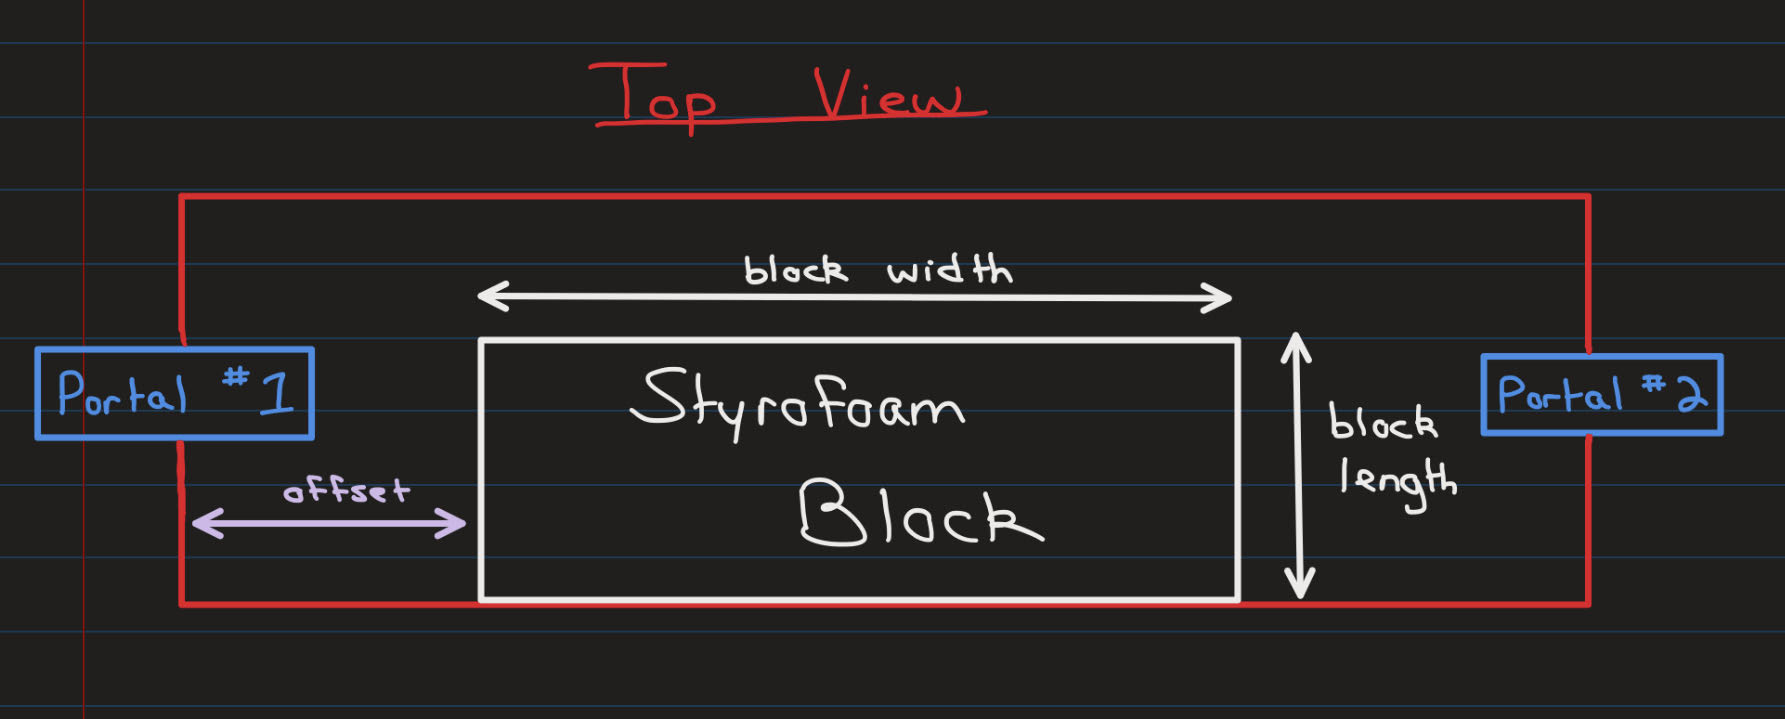 Top View
block width
Portal #1
Styrofoam
Block
block
length
Portal #2
offset